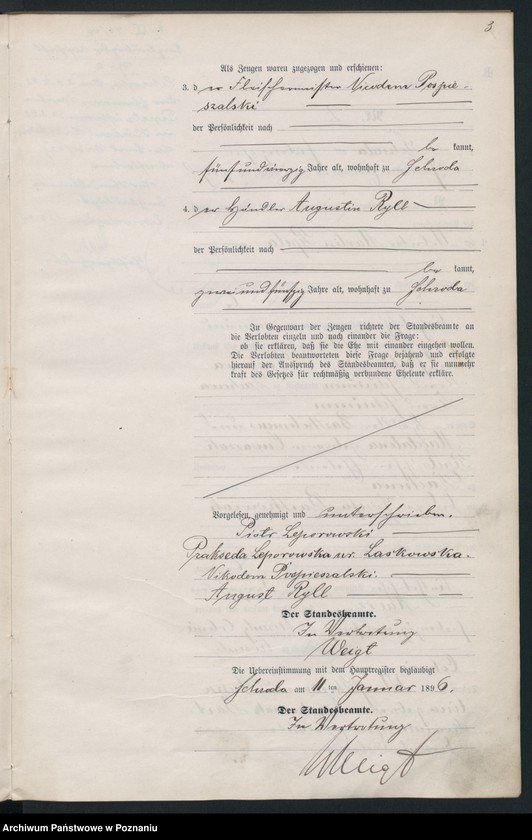 3
Als Zeugen waren zugezogen und erschienen:
3. der Fleischermeister Nicodem Pospie-
szalski
der Persönlichkeit nach
be kannt,
fünfundvierzig Jahre alt, wohnhaft zu Schroda
4. der Händler Augustin Ryll
der Persönlichkeit nach
be kannt,
zweiundfünfzig Jahre alt, wohnhaft zu Schroda
In Gegenwart der Zeugen richtete der Standesbeamte an
die Verlobten einzeln und nach einander die Frage:
ob sie erklären, daß sie die Ehe mit einander eingehen wollen.
Die Verlobten beantworteten diese Frage bejahend und erfolgte
hierauf der Ausspruch des Standesbeamten, daß er sie nunmehr
kraft des Gesetzes für rechtmäßig verbundene Eheleute erkläre.
Vorgelesen, genehmigt und unterschrieben.
Piotr Leporowski
Prakseda Leporowska ur. Laskowska.
Nikodem Pospieszalski.
August Ryll
Der Standesbeamte.
In Vertretung
Weigt
Die Uebereinstimmung mit dem Hauptregister beglaubigt
Schroda am 11 ten Januar 1896.
Der Standesbeamte.
In Vertretung
Weigt
Archiwum Państwowe w Poznaniu